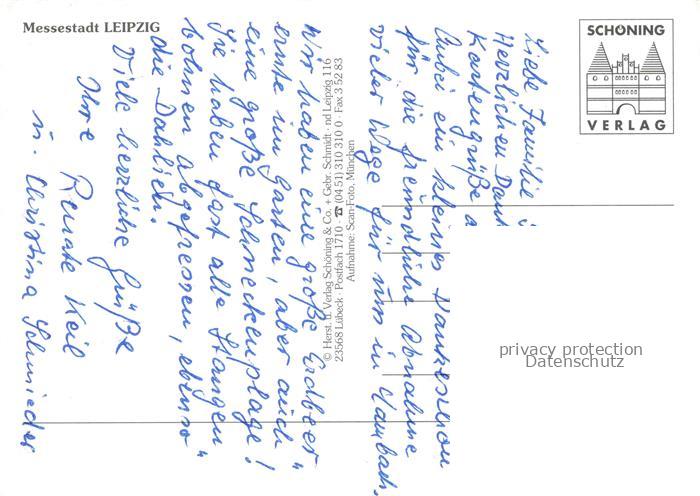 Messestadt LEIPZIG
SCHÖNING
VERLAG
Liebe Familie
Herzlichen Dank
Kartengrüße a
Anbei ein kleines Dankeschön
für die freundliche Abnahme
vieler Wege für uns in
Wir haben eine große Erdbeer"
ernte im Garten, aber auch
eine große Schneckenplage!
Sie haben fast alle Stangen"
bohnen abgefressen, ebenso
die Dahlien.
Viele herzliche Grüße
Ihre Renate Keil
u. Christina Schmieder
© Herst. u. Verlag Schöning & Co. + Gebr. Schmidt · nd Leipzig 116
23568 Lübeck · Postfach 1710 · ☎ (04 51) 310 310 0 · Fax 3 52 83
Aufnahme: Scan-Foto, München
privacy protection
Datenschutz